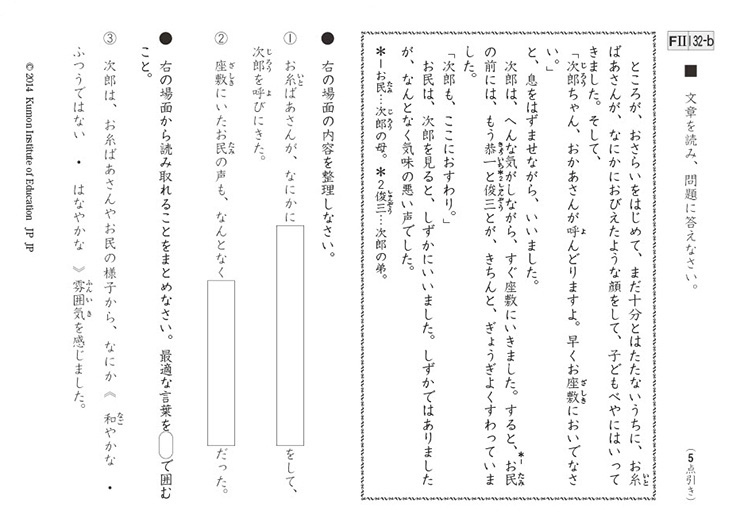 FⅡ 132-b
■ 文章を読み、問題に答えなさい。
(5点引き)
ところが、おさらいをはじめて、まだ十分とはたたないうちに、お糸
ばあさんが、なにかにおびえたような顔をして、子どもべやにはいって
きました。そして、
「次郎ちゃん、おかあさんが呼んどりますよ。早くお座敷においでなさ
い。」
と、息をはずませながら、いいました。
次郎は、へんな気がしながら、すぐ座敷にいきました。すると、*1お民
の前には、もう恭一と*2俊三とが、きちんと、ぎょうぎよくすわっていま
した。
「次郎も、ここにおすわり。」
お民は、次郎を見ると、しずかにいいました。しずかではありました
が、なんとなく気味の悪い声でした。
*1お民…次郎の母。*2俊三…次郎の弟。
● 右の場面の内容を整理しなさい。
① お糸ばあさんが、なにかに をして、
次郎を呼びにきた。
② 座敷にいたお民の声も、なんとなく だった。
● 右の場面から読み取れることをまとめなさい。最適な言葉を で囲む
こと。
③ 次郎は、お糸ばあさんやお民の様子から、なにか《 和やかな ・
ふつうではない ・ はなやかな 》雰囲気を感じました。
© 2014 Kumon Institute of Education JP JP